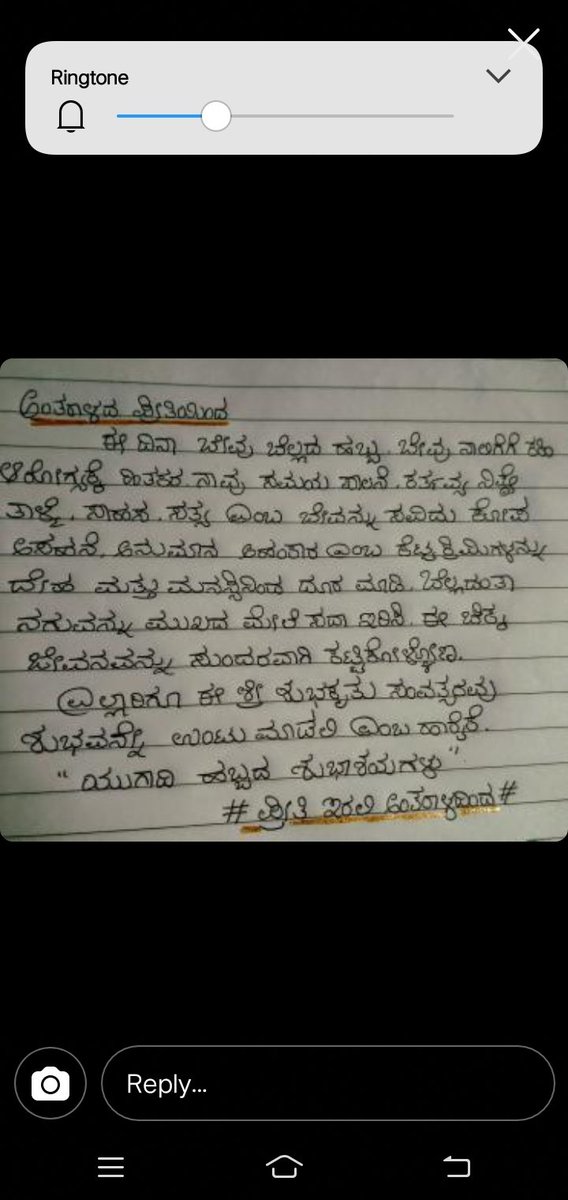 Ringtone
ಅಂತರಾಳದ ಪ್ರೀತಿಯಿಂದ
ಈ ದಿನಾ ಬೇವು ಬೆಲ್ಲದ ಹಬ್ಬ. ಬೇವು ನಾಲಿಗೆಗೆ ಕಹಿ
ಆರೋಗ್ಯಕ್ಕೆ ಹಿತಕರ ನಾವು ಸಮಯ ಪಾಲನೆ. ಕರ್ತವ್ಯ ನಿಷ್ಠೆ
ತಾಳ್ಮೆ. ಸಾಹಸ. ಸತ್ಯ ಎಂಬ ಬೇವನ್ನು ಸವಿದು ಕೋಪ
ಅಸಹನೆ. ಅನುಮಾನ ಅಹಂಕಾರ ಎಂಬ ಕೆಟ್ಟ ಕ್ರಿಮಿಗಳನ್ನು
ದೇಹ ಮತ್ತು ಮನಸ್ಸಿನಿಂದ ದೂರ ಮಾಡಿ. ಬೆಲ್ಲದಂತಾ
ನಗುವನ್ನು ಮುಖದ ಮೇಲೆ ಸದಾ ಇರಿಸಿ. ಈ ಚಿಕ್ಕ
ಜೀವನವನ್ನು ಸುಂದರವಾಗಿ ಕಟ್ಟಿಕೋಳ್ಳೋಣ.
ಎಲ್ಲಾರಿಗೂ ಈ ಶ್ರೀ ಶುಭಕೃತು ಸಂವತ್ಸರವು
ಶುಭವನ್ನೇ ಉಂಟು ಮಾಡಲಿ ಎಂಬ ಹಾರೈಕೆ.
“ ಯುಗಾದಿ ಹಬ್ಬದ ಶುಭಾಶಯಗಳು ”
# ಪ್ರೀತಿ ಇರಲಿ ಅಂತರಾಳದಿಂದ #
Reply...